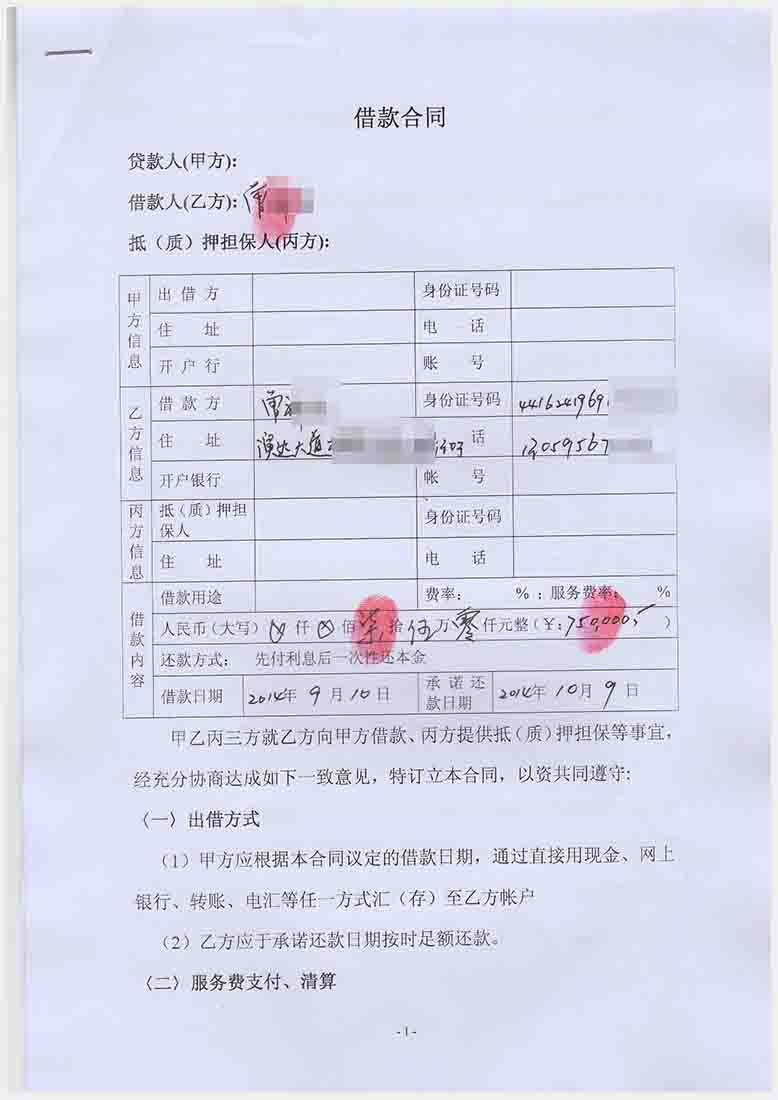 借款合同
贷款人(甲方):
借款人(乙方):
抵（质）押担保人(丙方):
甲方信息
出借方 身份证号码
住 址 电 话
开户行 账 号
乙方信息
借款方 身份证号码 44162419691
住 址 演达大道 话 13059567
开户银行 帐 号
丙方信息
抵（质）押担保人 身份证号码
住 址 电 话
借款内容
借款用途 费率: %；服务费率: %
人民币（大写）ⓧ仟ⓧ佰柒拾伍万零仟元整（¥:750,000,-）
还款方式: 先付利息后一次性还本金
借款日期 2014年9月10日 承诺还款日期 2014年10月9日
甲乙丙三方就乙方向甲方借款、丙方提供抵（质）押担保等事宜，
经充分协商达成如下一致意见，特订立本合同，以资共同遵守:
〈一〉出借方式
（1）甲方应根据本合同议定的借款日期，通过直接用现金、网上
银行、转账、电汇等任一方式汇（存）至乙方帐户
（2）乙方应于承诺还款日期按时足额还款。
〈二〉服务费支付、清算
- 1 -